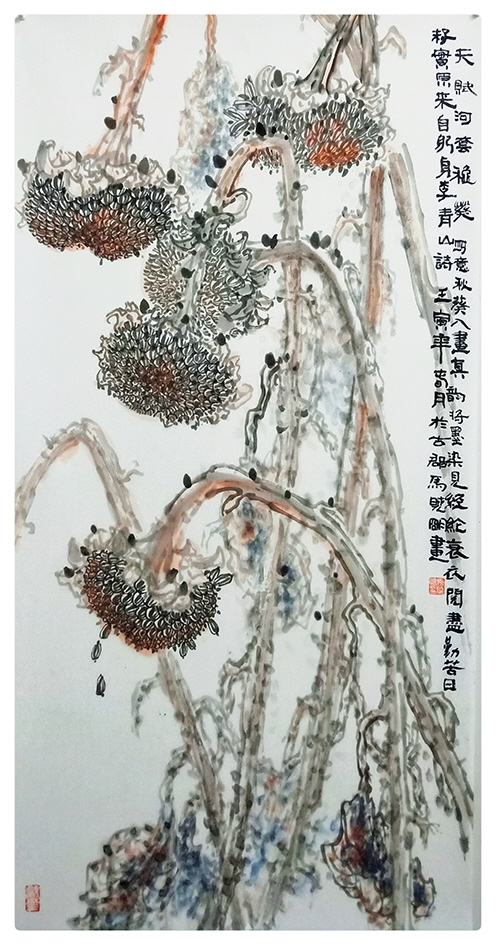 天賦河套雅葵 寫意秋葵入畫真韵將墨染見經綸衰衣閱盡勤苦日
籽實原來自躬身李青山詩 壬寅年月於古郡馬明畫